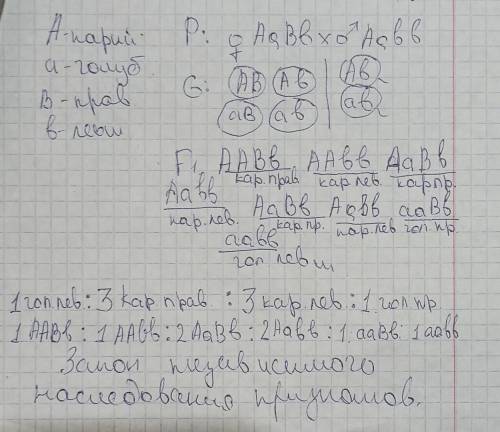 А-карий
а-голуб
В-прав
в-левш
Р: ♀ АаВв х ♂ Аавв
G: АВ Ав | Ав
аВ ав | ав
F₁ ААВв ААвв АаВв
кар.прав кар.лев. кар.пр.
Аавв АаВв Аавв ааВв
кар.лев. кар.пр. кар.лев гол.пр.
аавв
гол.левш
1 гол.лев : 3 кар.прав : 3 кар.лев : 1 гол.пр
1 ААВв : 1 ААвв : 2 АаВв : 2 Аавв : 1 ааВв : 1 аавв
Закон независимого
наследования признаков.